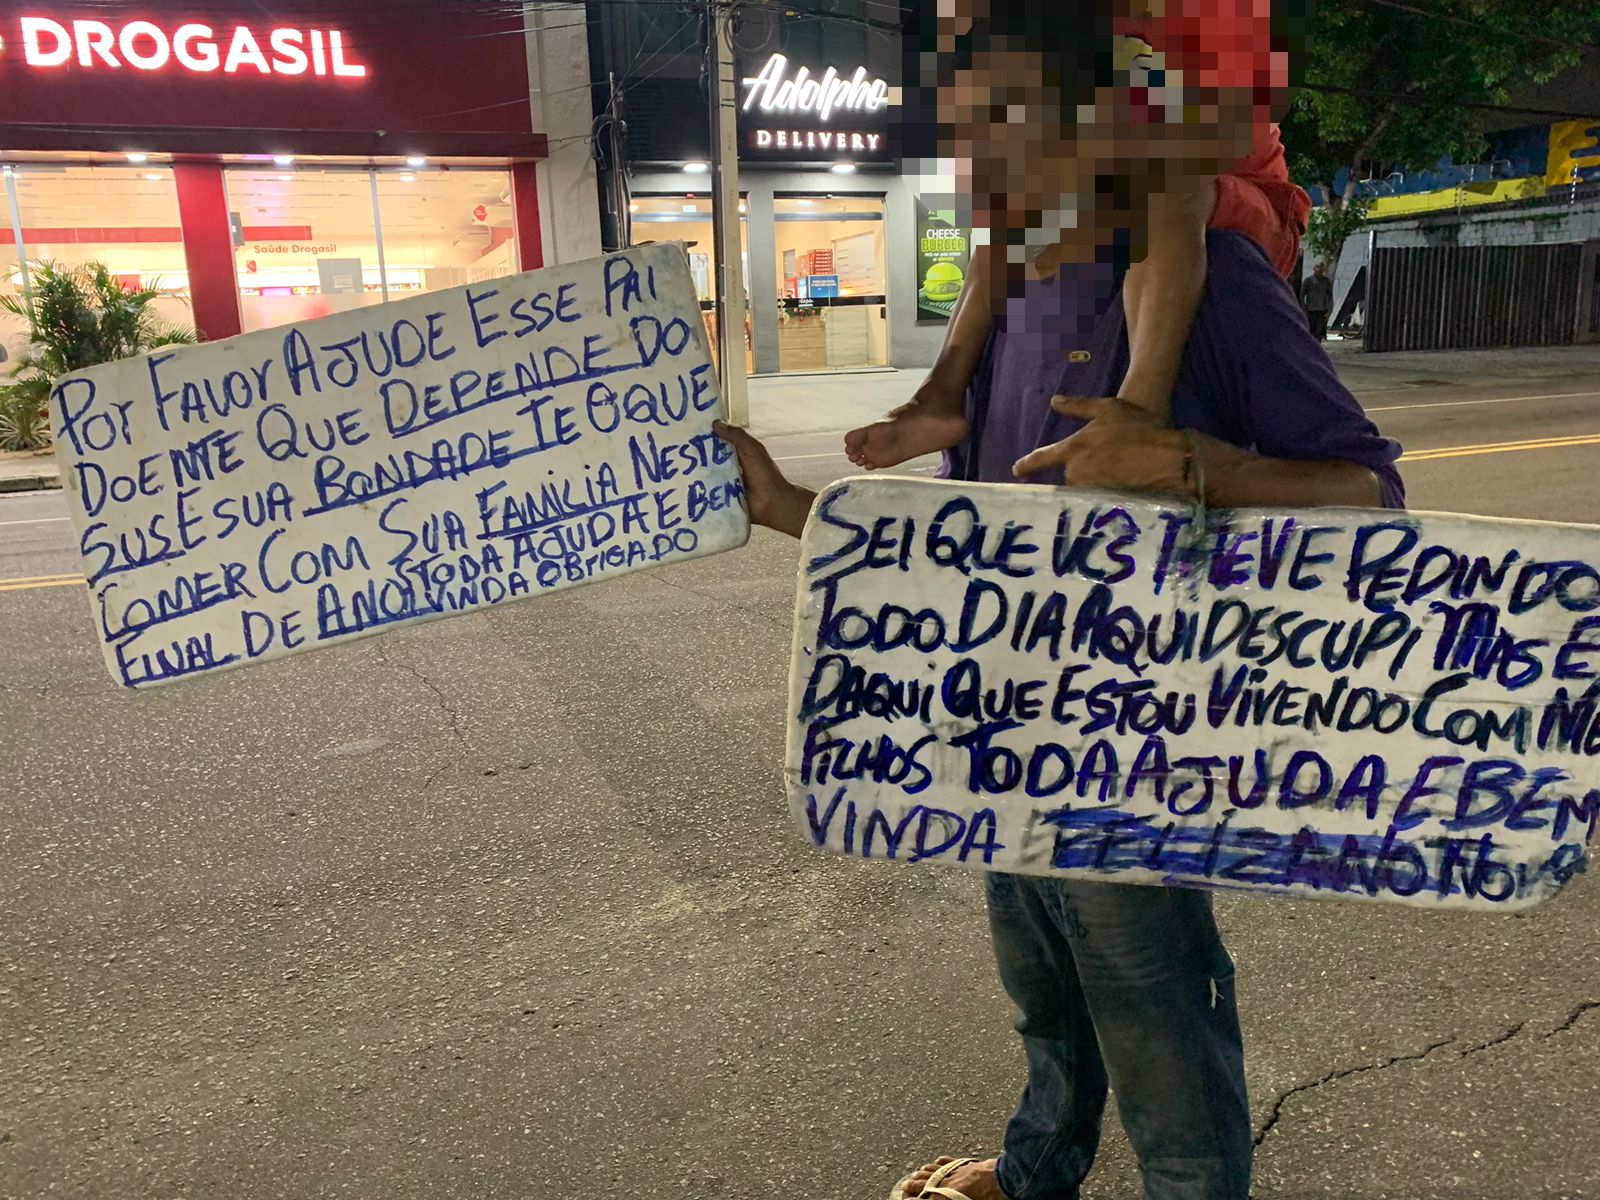 DROGASIL
Adolpho
DELIVERY
Saúde Drogasil
CHEESE
BURGER
POR FAVOR AJUDE ESSE PAI
DOENTE QUE DEPENDE DO
SUS E SUA BONDADE TE O QUE
COMER COM SUA FAMILIA NESTE
FINAL DE ANO TODA AJUDA E BEM
VINDA OBRIGADO
SEI QUE VIS TEVE PEDINDO
TODO DIA AQUI DESCUPI MAS E
DAQUI QUE ESTOU VIVENDO COM ME
FILHOS TODA AJUDA E BEM
VINDA FELIZ ANO NOVO